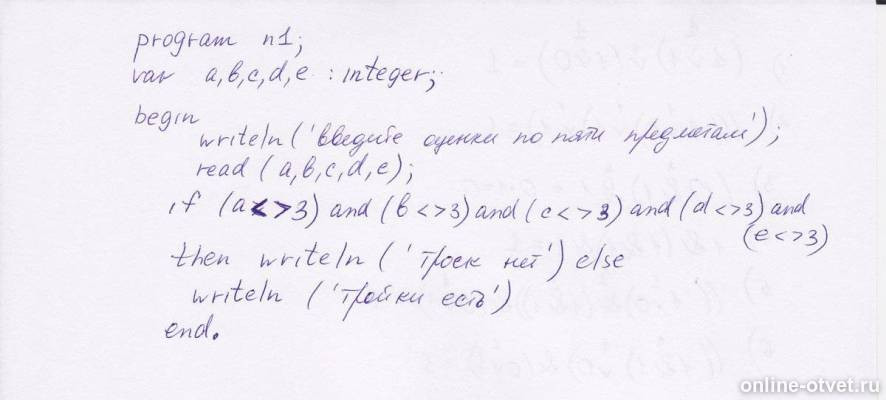 program n1;
var a,b,c,d,e : integer;
begin
writeln('введите оценки по пяти предметам');
read (a,b,c,d,e);
if (a<>3) and (b<>3) and (c<>3) and (d<>3) and
(e<>3)
then writeln ('троек нет') else
writeln ('тройки есть')
end.
online-otvet.ru